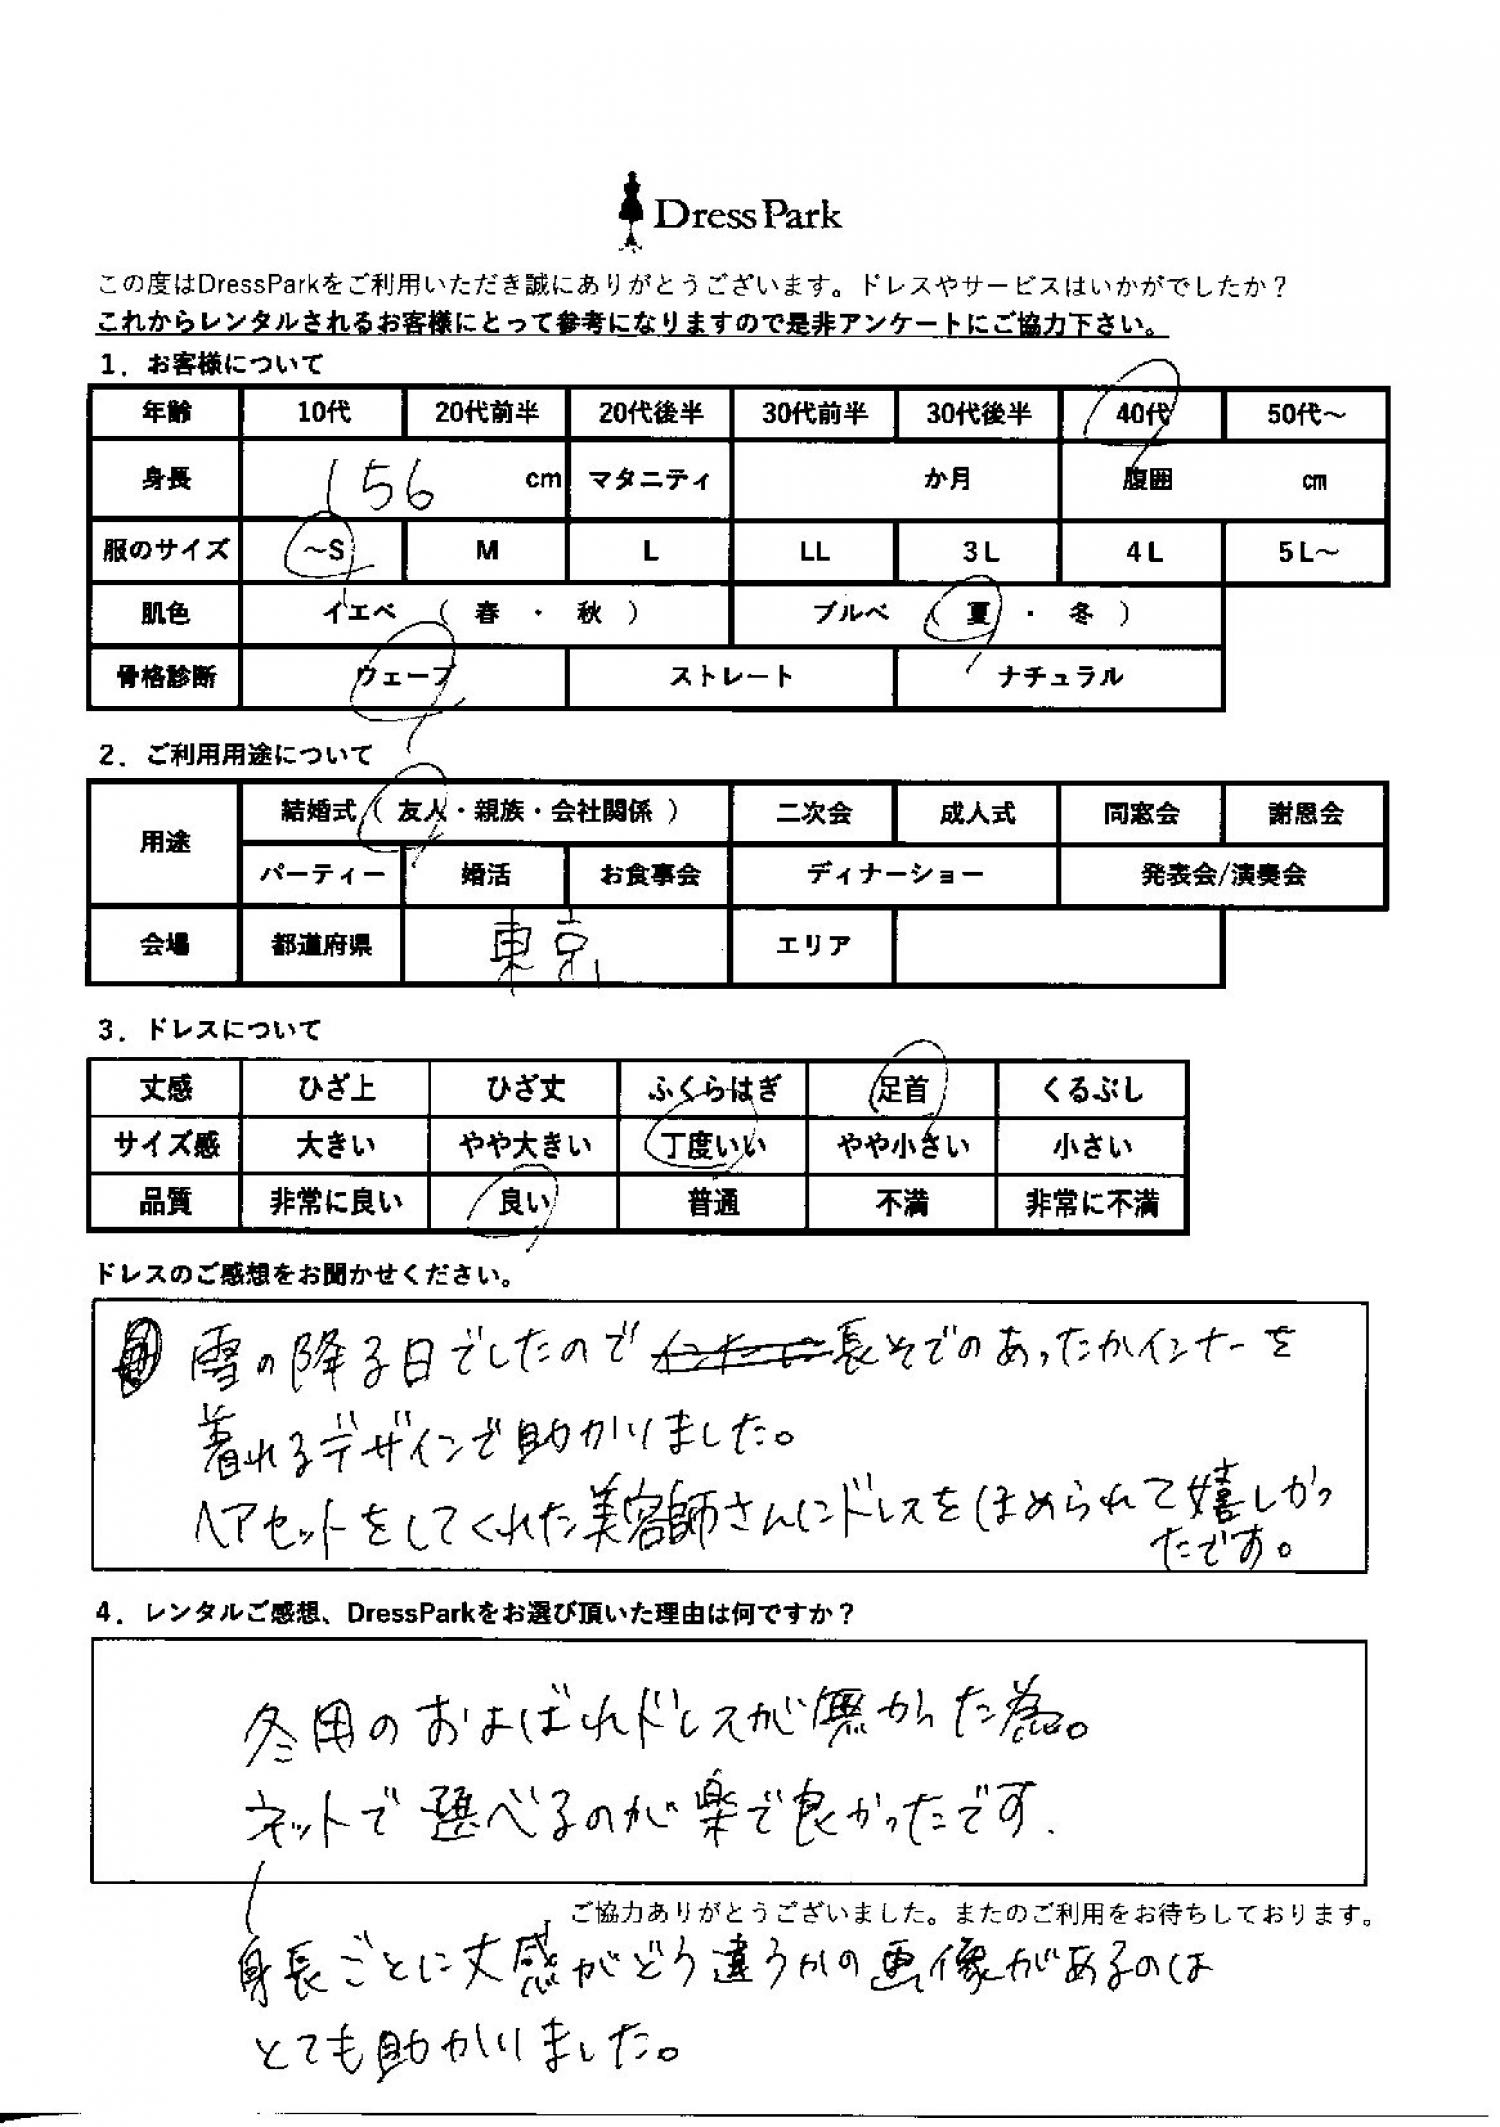 DressPark
この度はDressParkをご利用いただき誠にありがとうございます。ドレスやサービスはいかがでしたか？
これからレンタルされるお客様にとって参考になりますので是非アンケートにご協力下さい。
1．お客様について
年齢 10代 20代前半 20代後半 30代前半 30代後半 40代 50代～
身長 156 cm マタニティ か月 腹囲 cm
服のサイズ ～S M L LL 3L 4L 5L～
肌色 イエベ （ 春 ・ 秋 ） ブルベ （ 夏 ・ 冬 ）
骨格診断 ウェーブ ストレート ナチュラル
2．ご利用用途について
用途 結婚式（ 友人・親族・会社関係 ） 二次会 成人式 同窓会 謝恩会
パーティー 婚活 お食事会 ディナーショー 発表会/演奏会
会場 都道府県 東京 エリア
3．ドレスについて
丈感 ひざ上 ひざ丈 ふくらはぎ 足首 くるぶし
サイズ感 大きい やや大きい 丁度いい やや小さい 小さい
品質 非常に良い 良い 普通 不満 非常に不満
ドレスのご感想をお聞かせください。
雪の降る日でしたので長そでのあったかインナーを
着れるデザインで助かりました。
ヘアセットをしてくれた美容師さんにドレスをほめられて嬉しかっ
たです。
4．レンタルご感想、DressParkをお選び頂いた理由は何ですか？
冬用のおよばれドレスが無かった為。
ネットで選べるのが楽で良かったです.
ご協力ありがとうございました。またのご利用をお待ちしております。
身長ごとに丈感がどう違うかの画像があるのは
とても助かりました。